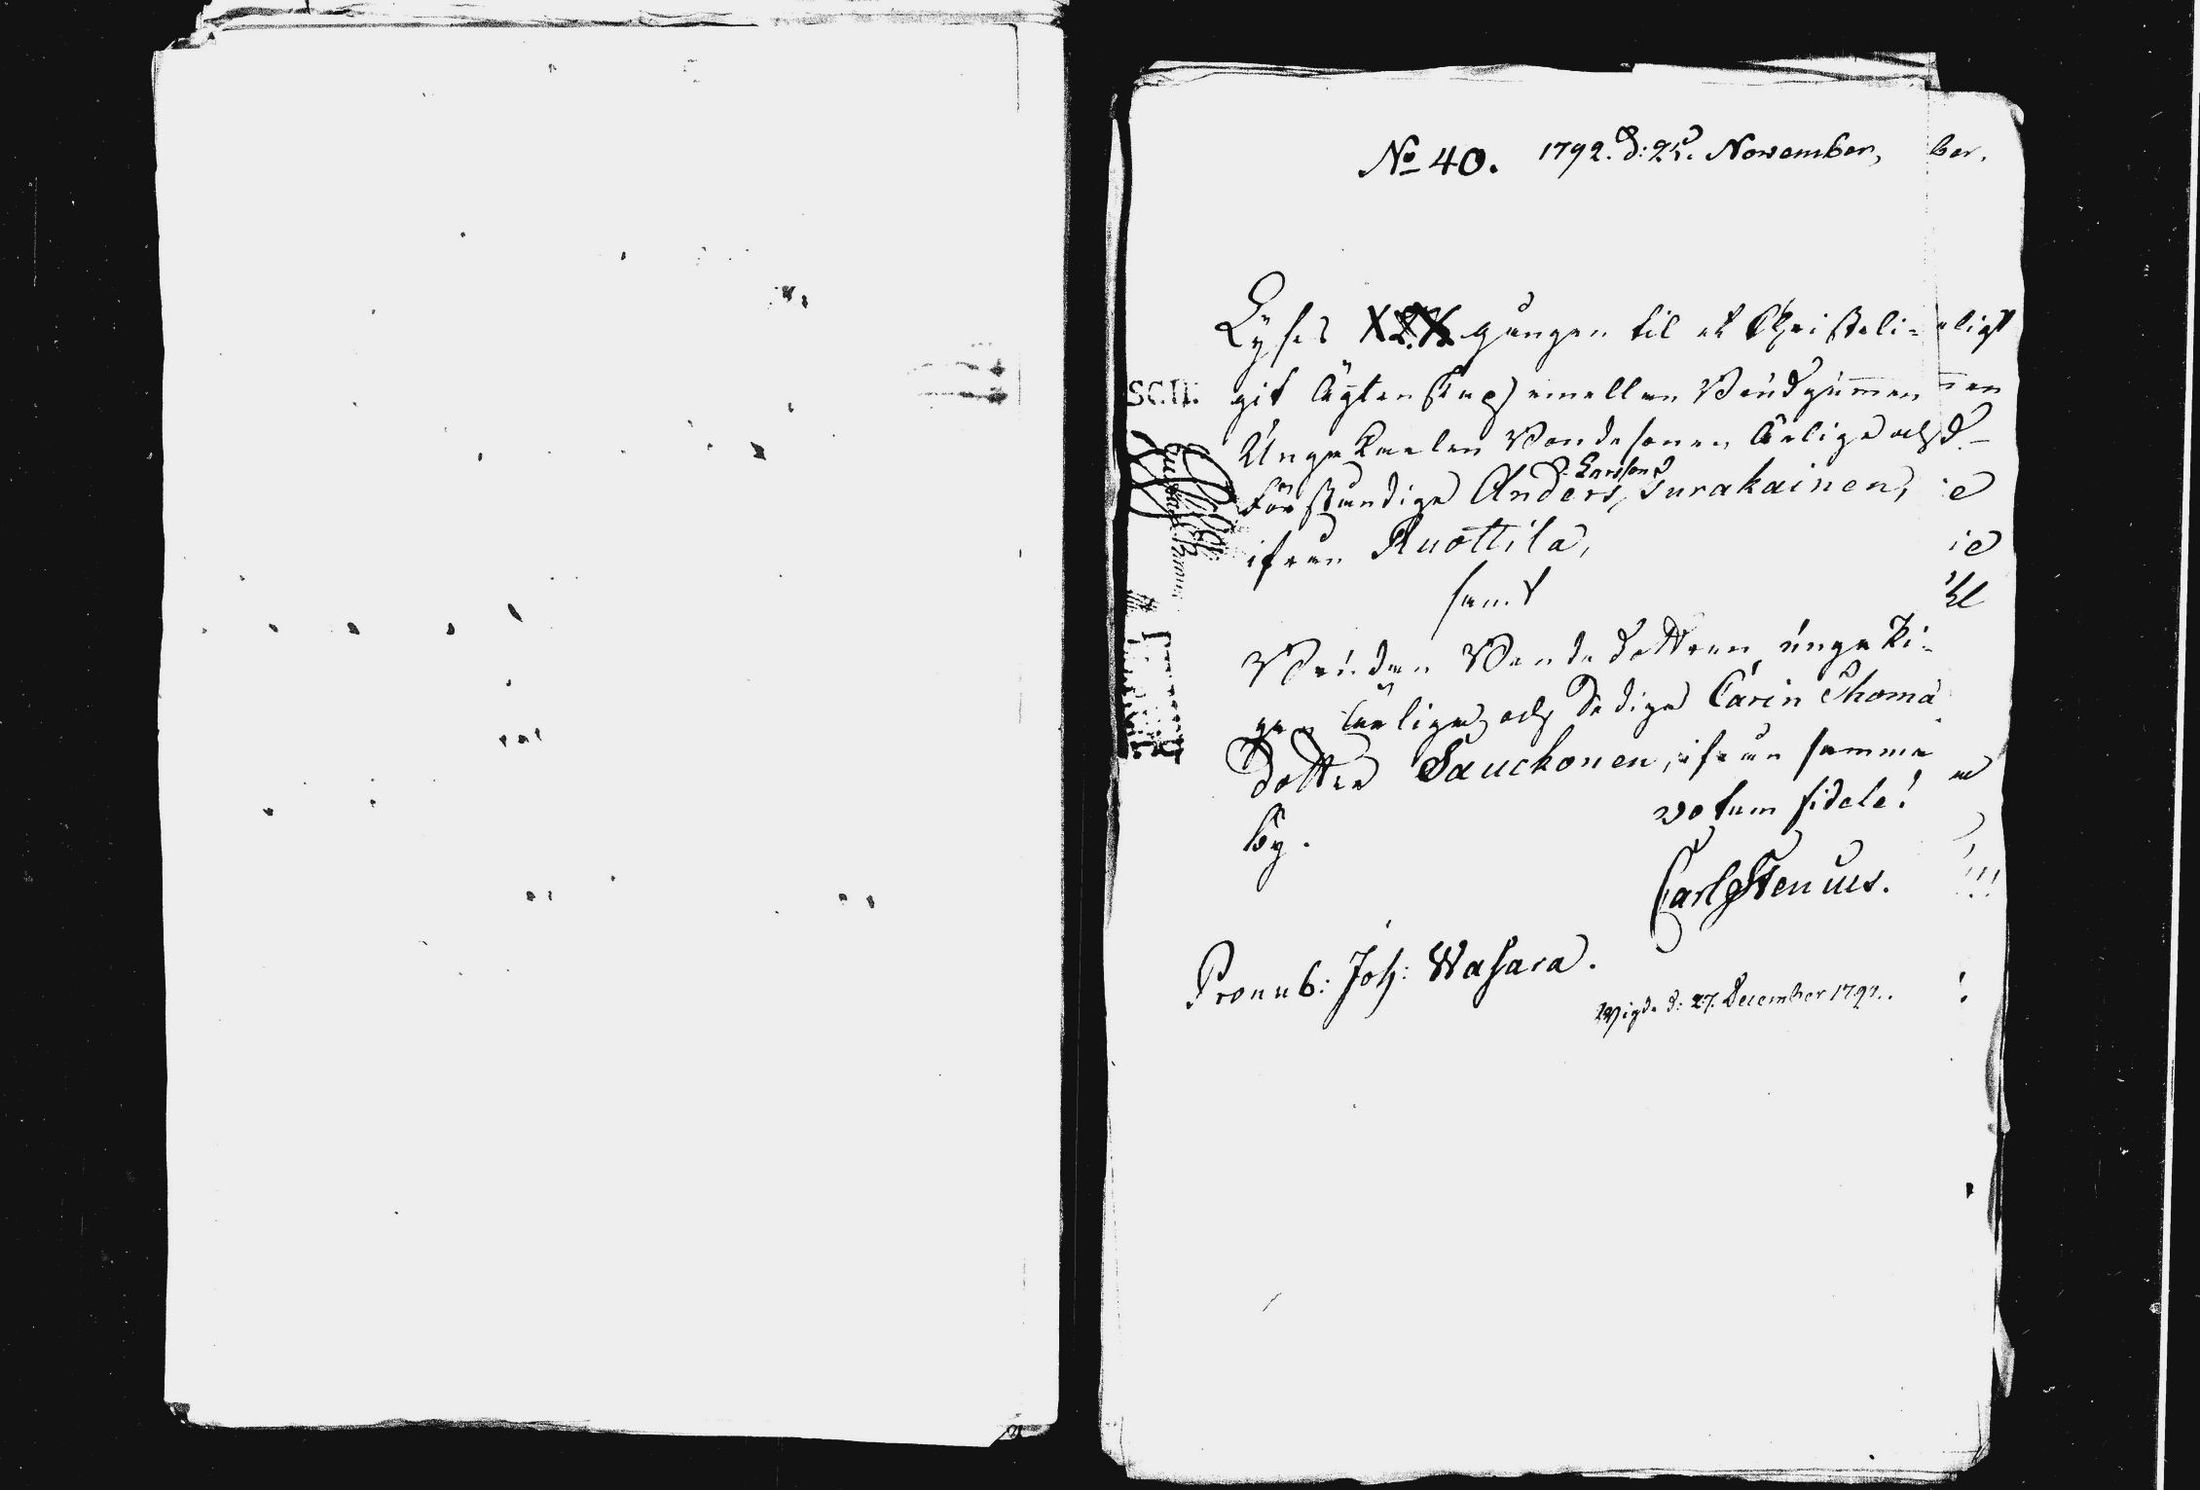 No 40. 1792. d: 25. November,
Lyses XXX gången til et Christeli=
git Ägtenskap emellan Brudgummen
Unga Karlen Bondesonen Ärlige och
Förståndige Anders Larsson Surakainen,
ifrån Ruottila,
samt
Bruden Bondedottren unga Pi-
gan ärliga och Dediga Carin Thoma
dotter Sauckonen, ifrån samma
by.
votum fidele!
Carl Stenius.
Pronub: Joh: Wasara.
Wigde d: 27. December 1792.